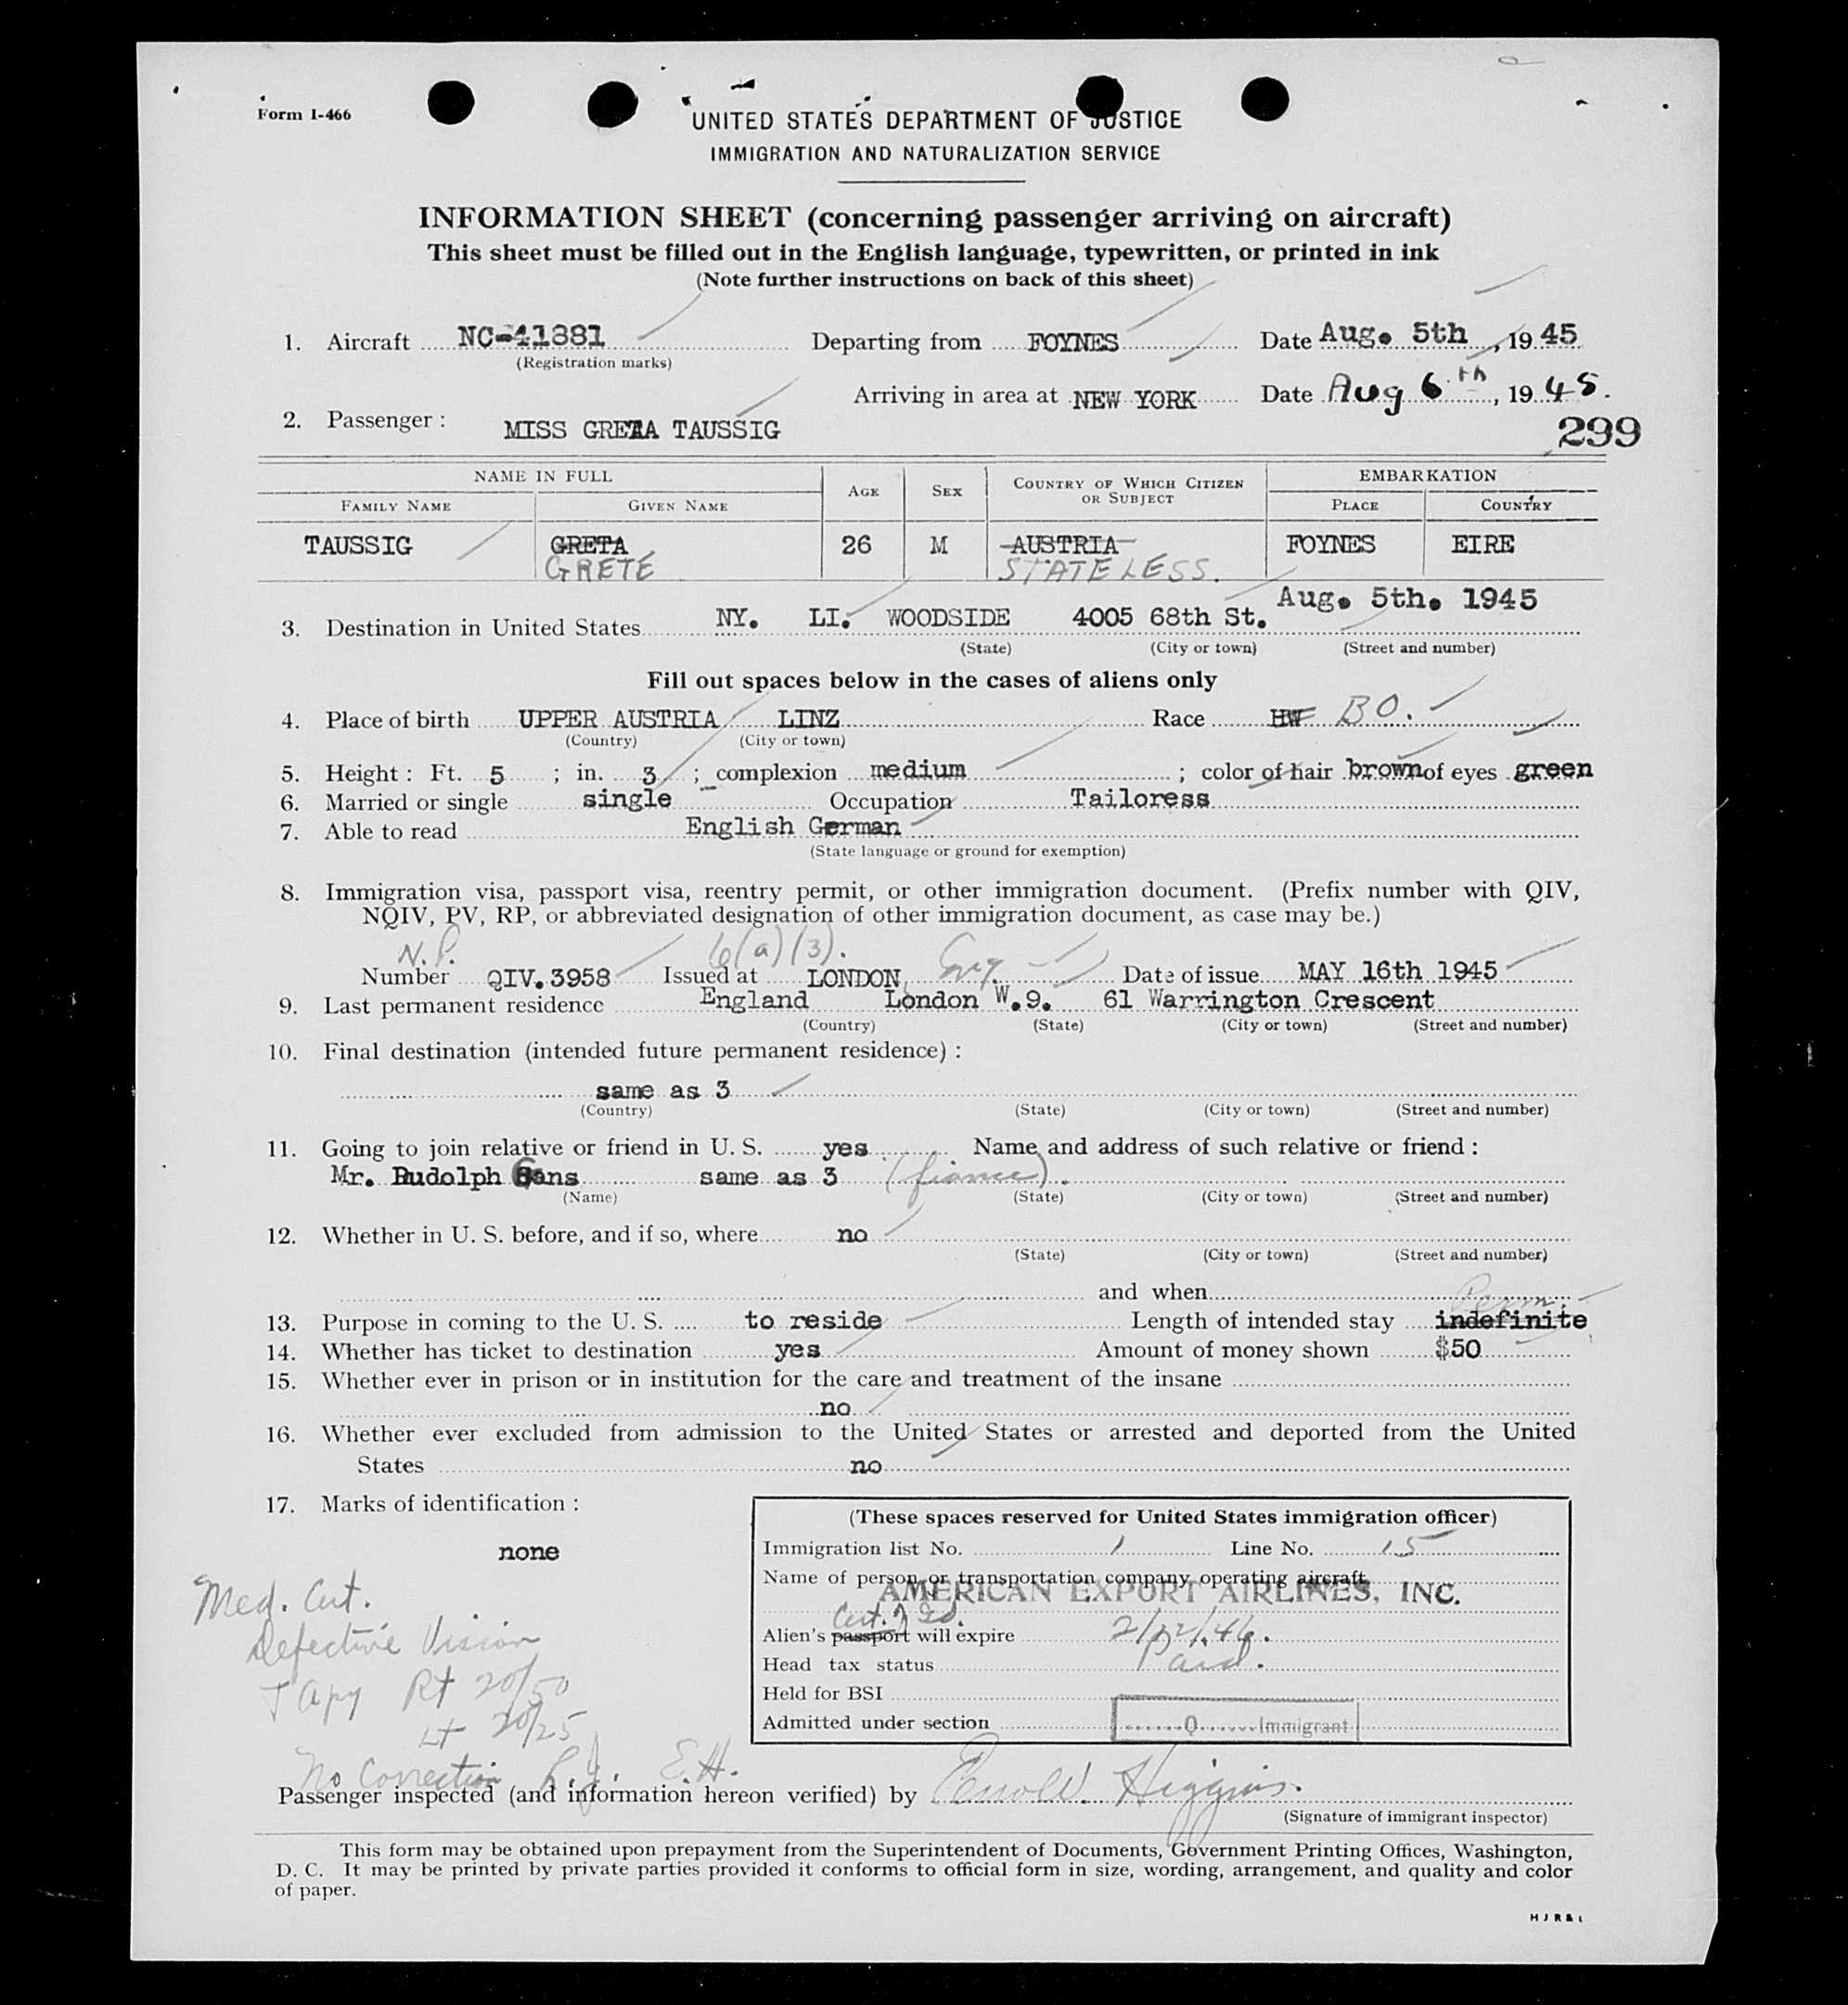 Form I-466
UNITED STATES DEPARTMENT OF JUSTICE
IMMIGRATION AND NATURALIZATION SERVICE
INFORMATION SHEET (concerning passenger arriving on aircraft)
This sheet must be filled out in the English language, typewritten, or printed in ink
(Note further instructions on back of this sheet)
1. Aircraft NC-41881 Departing from FOYNES Date Aug. 5th, 1945
(Registration marks)
Arriving in area at NEW YORK Date Aug 6th, 1945.
2. Passenger: MISS GRETA TAUSSIG
299
NAME IN FULL AGE SEX COUNTRY OF WHICH CITIZEN OR SUBJECT EMBARKATION
FAMILY NAME GIVEN NAME PLACE COUNTRY
TAUSSIG GRETA 26 M AUSTRIA FOYNES EIRE
GRETE STATELESS.
Aug. 5th. 1945
3. Destination in United States NY. LI. WOODSIDE 4005 68th St.
(State) (City or town) (Street and number)
Fill out spaces below in the cases of aliens only
4. Place of birth UPPER AUSTRIA LINZ Race HW BO.
(Country) (City or town)
5. Height: Ft. 5; in. 3; complexion medium; color of hair brown of eyes green
6. Married or single single Occupation Tailoress
7. Able to read English German
(State language or ground for exemption)
8. Immigration visa, passport visa, reentry permit, or other immigration document. (Prefix number with QIV,
NQIV, PV, RP, or abbreviated designation of other immigration document, as case may be.)
N.P. 6(a)(3).
Number QIV.3958 Issued at LONDON, Eng. Date of issue MAY 16th 1945
9. Last permanent residence England London W.9. 61 Warrington Crescent
(Country) (State) (City or town) (Street and number)
10. Final destination (intended future permanent residence):
same as 3
(Country) (State) (City or town) (Street and number)
11. Going to join relative or friend in U. S. yes Name and address of such relative or friend:
Mr. Rudolph Gans same as 3 (fiance).
(Name) (State) (City or town) (Street and number)
12. Whether in U. S. before, and if so, where no
(State) (City or town) (Street and number)
and when
Perm.
13. Purpose in coming to the U. S. to reside Length of intended stay indefinite
14. Whether has ticket to destination yes Amount of money shown $50
15. Whether ever in prison or in institution for the care and treatment of the insane
no
16. Whether ever excluded from admission to the United States or arrested and deported from the United
States no
17. Marks of identification:
none
(These spaces reserved for United States immigration officer)
Immigration list No. 1 Line No. 15
Name of person or transportation company operating aircraft
AMERICAN EXPORT AIRLINES, INC.
Cert. of Id.
Alien's passport will expire 2/12/46.
Head tax status Paid.
Held for BSI
Admitted under section Q Immigrant
Med. Cert.
Defective Vision
Rt 20/50
Lt 20/25
No Correction E.H.
Passenger inspected (and information hereon verified) by Higgins.
(Signature of immigrant inspector)
This form may be obtained upon prepayment from the Superintendent of Documents, Government Printing Offices, Washington,
D. C. It may be printed by private parties provided it conforms to official form in size, wording, arrangement, and quality and color
of paper.